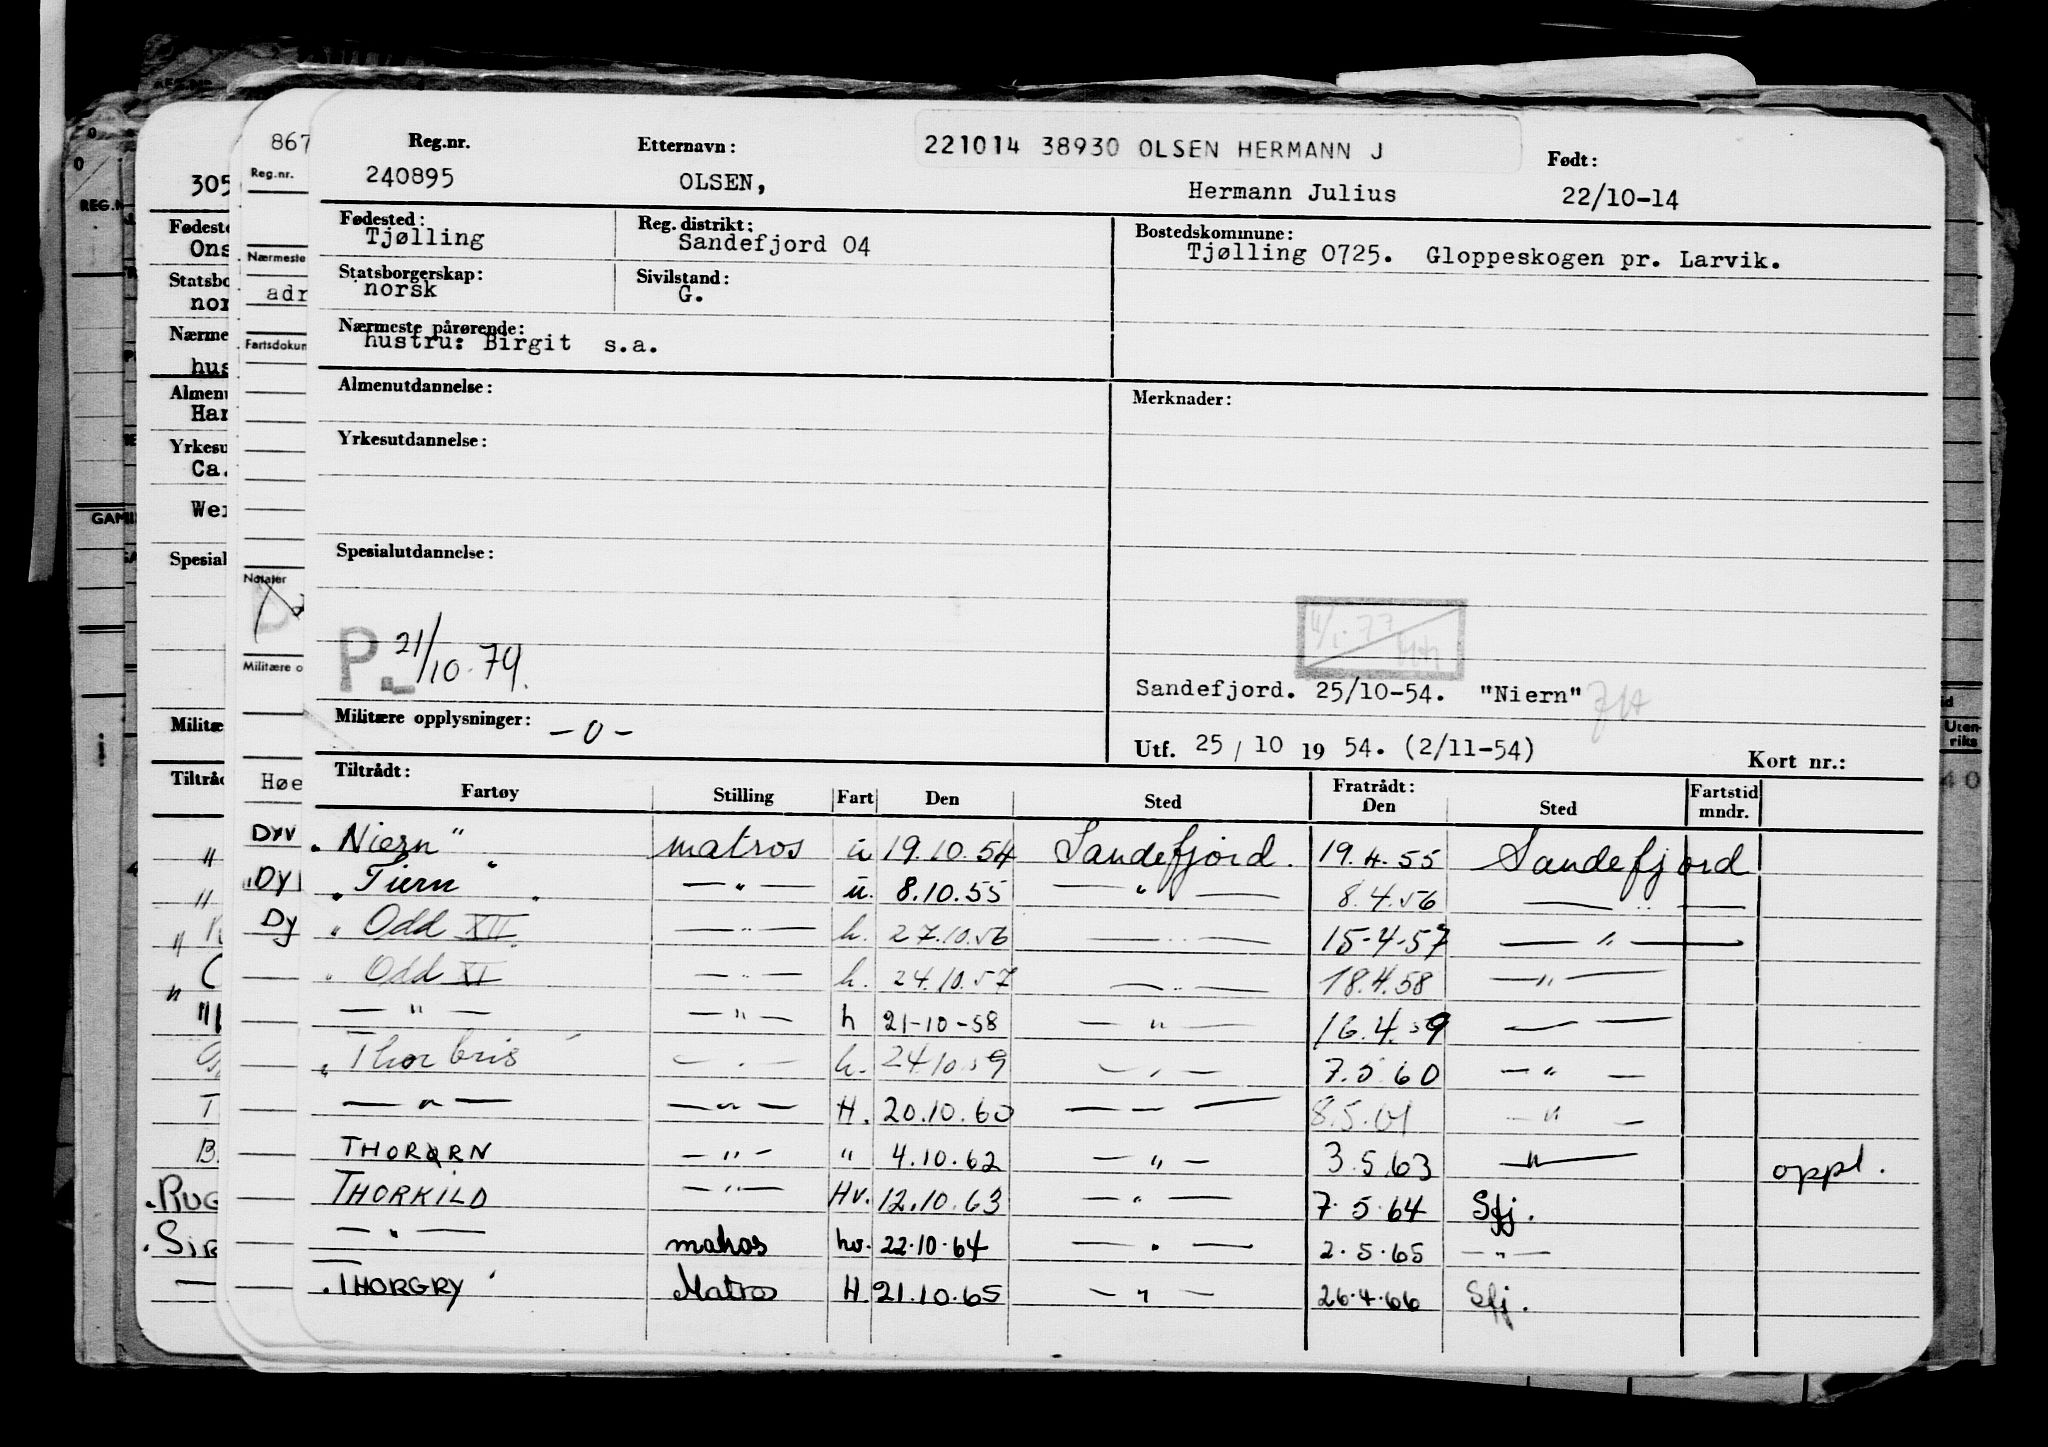 221014 38930 OLSEN HERMANN J
Reg.nr. Etternavn: Født:
240895 OLSEN, Hermann Julius 22/10-14
Fødested: Reg. distrikt: Bostedskommune:
Tjølling Sandefjord 04 Tjølling 0725. Gloppeskogen pr. Larvik.
Statsborgerskap: Sivilstand:
norsk G.
Nærmeste pårørende:
hustru: Birgit s.a.
Almenutdannelse: Merknader:
Yrkesutdannelse:
Spesialutdannelse:
P. 21/10.79.
Sandefjord. 25/10-54. "Niern"
Militære opplysninger: -0-
Utf. 25/10 1954. (2/11-54) Kort nr.:
Tiltrådt: Fratrådt: Fartstid
Fartøy Stilling Fart Den Sted Den Sted mndr.
"Niern" matros u 19.10.54 Sandefjord. 19.4.55 Sandefjord
"Tiern" —"— u. 8.10.55 —"— 8.4.56 —"—
"Odd XII —"— h. 27.10.56 —"— 15-4-57 —"—
" Odd XI —"— h. 24.10.57 —"— 18.4.58 —"—
—"— —"— h 21-10-58 —"— 16.4.59 —"—
"Thorbris" —"— h. 24.10.59 —"— 7.5.60 —"—
—"— —"— H. 20.10.60 —"— 8.5.61 —"—
THORØRN —"— " 4.10.62 —"— 3.5.63 —"— oppl.
THORKILD —"— Hv. 12.10.63 —"— 7.5.64 Sfj.
—"— matros hv. 22.10.64 —"— 2.5.65 —"—
THORGRY Matros H. 21.10.65 —"— 26.4.66 Sfj.
867
Reg.nr.
Nærmeste
adr
Fartsdokun
Notater
Militære o
Høe
Dyv
Dy
Dy
305
Fødeste
Ons
Statsbo
nor
Nærme
hus
Almenu
Har
Yrkesu
Ca.
Wer
Spesial
Militæ
Tiltråd
RUG
SIR
REG.N
GAMI
Uten-
riks